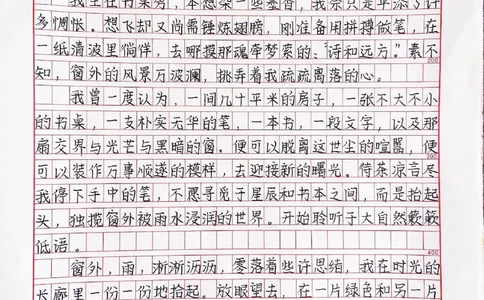 我坐在书桌旁，本想染一些墨香，我亦只是平添了许
多惆怅。想飞却又尚需锤炼翅膀，刚准备用拼搏做笔，在
一纸清波里倘佯，去哪摸那魂牵梦索的、"诗和远方"。素不
知，窗外的风景万波澜，挑弄着我疏疏离落的心。
200
我曾一度认为，一间几十平米的房子，一张不大不小
的书桌，一支朴实无华的笔，一本书，一段文字，以及那
扇交界与光芒与黑暗的窗。便可以脱离这世尘的喧嚣，便
可以装作万事顺遂的模样，去迎接新的曙光。待茶凉言尽
300
我停下手中的笔，不愿寻觅于星辰和书本之间，而是抬起
头，独揽窗外被雨水浸润的世界。开始聆听于大自然簌簌
低语。
400
窗外，雨，淅淅沥沥，零落着些许思绪，我在时光的
长廊里一份一份地拾起。放眼望去，在一片绿色和另一片